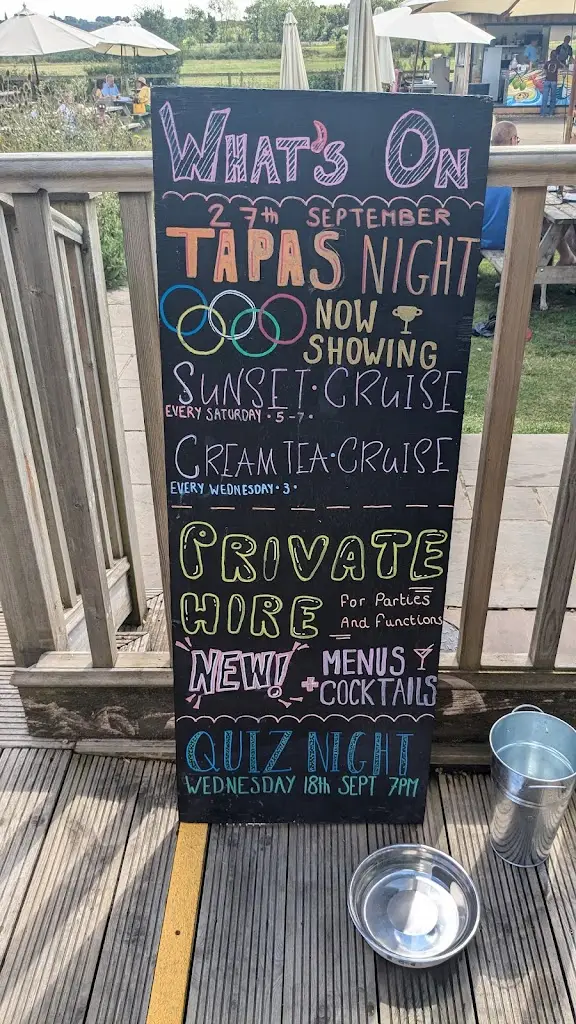 WHAT'S ON
27th SEPTEMBER
TAPAS NIGHT
NOW
SHOWING
SUNSET · CRUISE
EVERY SATURDAY · 5-7 ·
CREAM TEA · CRUISE
EVERY WEDNESDAY · 3 ·
PRIVATE
HIRE
For Parties
And Functions
NEW!
MENUS
+ COCKTAILS
QUIZ NIGHT
WEDNESDAY 18th SEPT 7PM